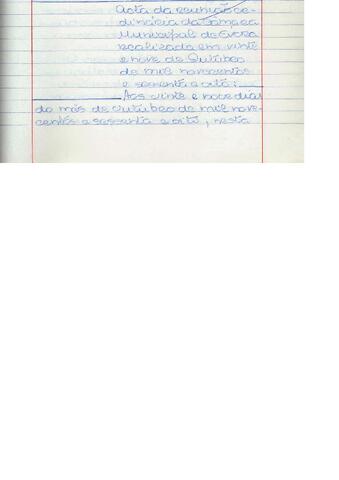 Acta da reunião or-
dinária da Câmara
Municipal de Évora
realizada em vinte
e nove de Outubro
de mil novecentos
e sessenta e oito:
Aos vinte e nove dias
do mês de Outubro de mil nove-
centos e sessenta e oito, nesta